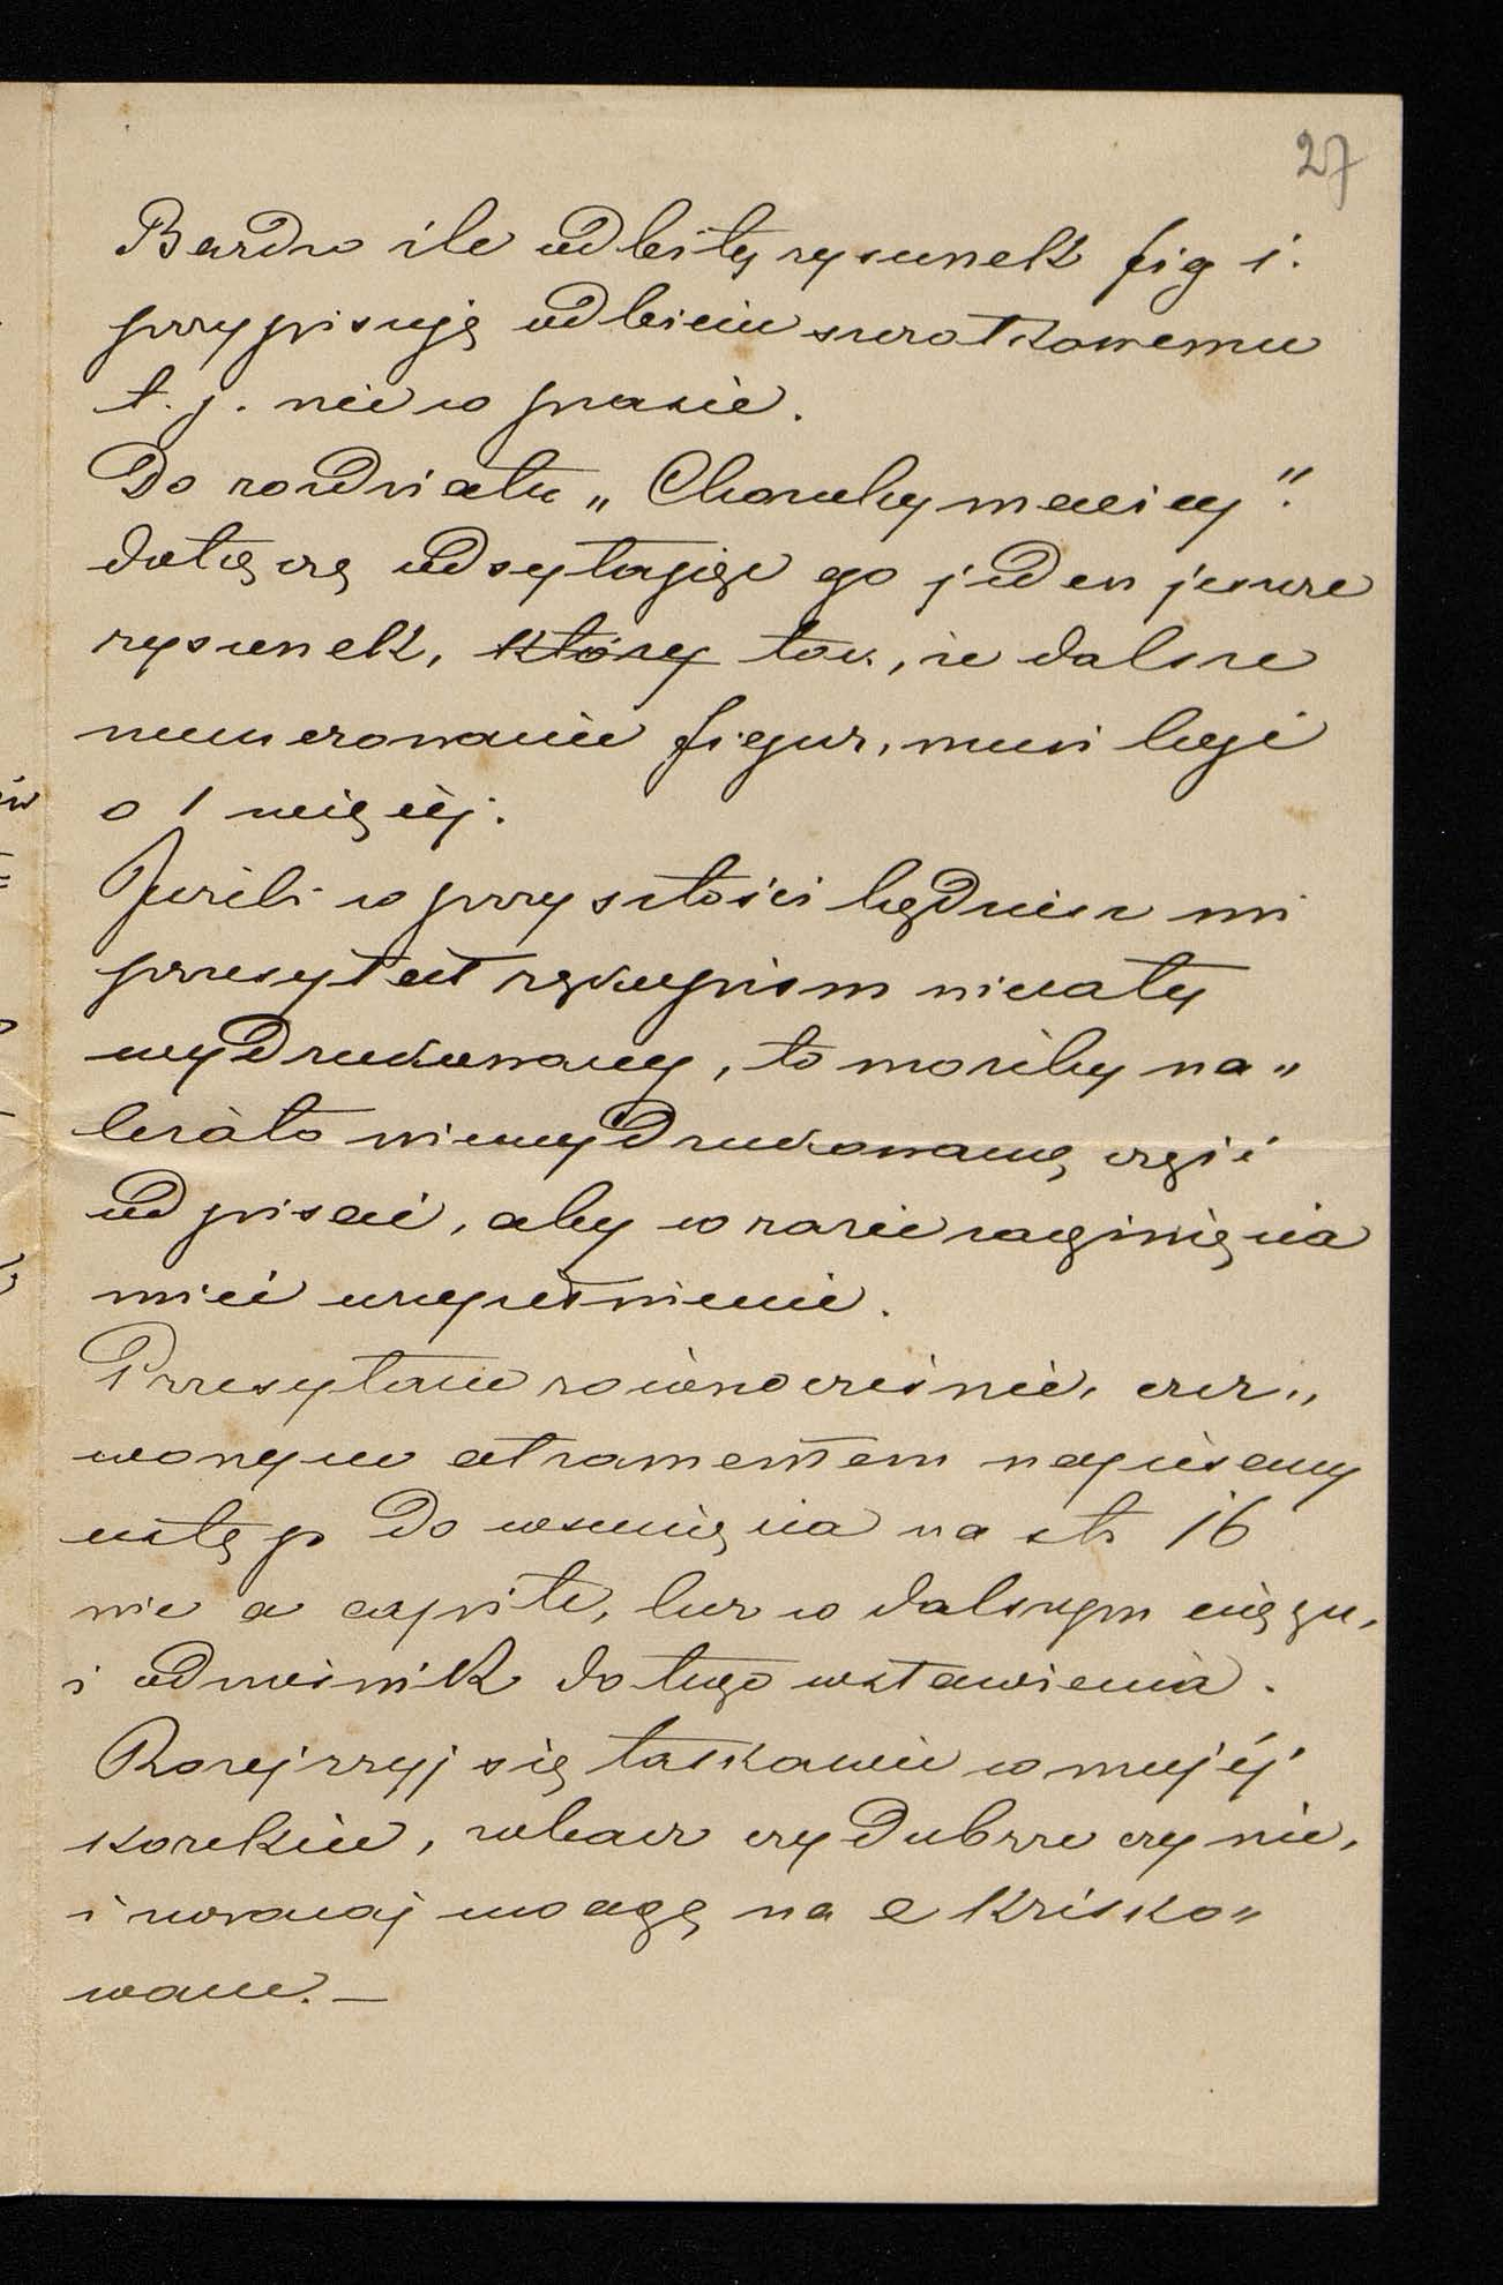 27
Bardzo źle odbity rysunek fig 1.
przypisuję odbiciu szczotkowemu
t. j. nie w prasie.
Do rozdziału „Choroby macicy".
dołączę odsyłając go jeden jeszcze
rysunek, który tak, że dalsze
numerowanie figur, musi być
o 1 więcéj.
Jeżeli w przyszłości będziesz mi
przesyłał rękopism niecały
wydrukowany, to możeby na„
leżało niewydrukowaną część
odpisać, aby w razie zaginięcia
mieć uzupełnienie.
Przesyłam równocześnie, czer„
wonym atramentem napisany
ustęp do wsunięcia na str 16
nie a capite, lecz w dalszym ciągu,
i odnośnik do tego wstawienia.
Rozejrzyj się łaskawie w mojéj
korekcie, zobacz czy dobrze czy nie,
i zwracaj uwagę na e krésko„
wane. —
ów